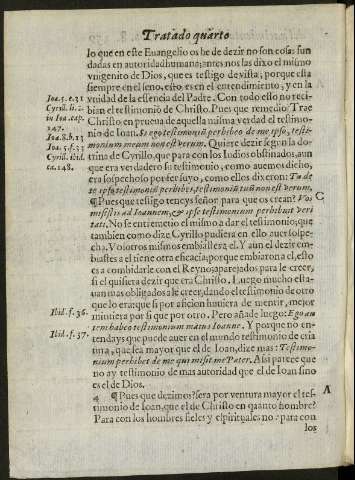 Tratado quarto
lo que en este Euangelio os he de dezir no son cosas fun
dadas en autoridad humana; antes nos las dixo el mismo
vnigenito de Dios, que es testigo de vista; porque esta
siempre en el seno, esto es en el entendimiento, y en la
verdad de la essencia del Padre. Con todo esso no reci-
bian el testimonio de Christo. Pues que remedio? Trae
Christo en prueua de aquella misma verdad el testimo-
nio de Ioan. Si ego testimoniũ perhibeo de me ipso, testi-
monium meum non est verum. Quiere dezir segun la do-
trina de Cyrillo, que para con los Iudios obstinados, aun
que era verdadero su testimonio, como auemos dicho,
era sospechoso por ser suyo, como ellos dixeron: Tu de
te ipso testimoniũ perhibes, testimoniũ tuũ non est verum.
¶ Pues que testigo teneys señor para que os crean? Vos
misistis ad Ioannem, & ipse testimonium perhibuit veri
tati. No se entremetio el mismo a dar el testimonio; que
tambien como dize Cyrillo pudiera en ello auer sospe-
cha. Vosotros mismos embiastes a el. Y aun el dezir em-
biastes a el tiene otra eficacia; porque embiaron a el, esto
es a combidarle con el Reyno, aparejados para le creer,
si el quisiera dezir que era Christo. Luego mucho esta-
uan mas obligados a le creer, dando el testimonio de otro
que lo era; que si por aficion huuiera de mentir, mejor
mintiera por si que por otro. Pero añade luego: Ego au
tem habeo testimonium maius Ioanne. Y porque no en-
tendays que puede auer en el mundo testimonio de cria
tura, que sea mayor que el de Ioan, dize mas: Testimo-
nium perhibet de me qui misit me Pater. Assi parece que
no ay testimonio de mas autoridad que el de Ioan sino
es el de Dios.
¶ Pues que dezimos? sera por ventura mayor el tes-
timonio de Ioan, que el de Christo en quanto hombre?
Para con los hombres fieles y espirituales no: para con
los
Ioa. 5. c. 31
Cyril. li. 2.
in Ioa. cap.
147.
Ioa. 8. b. 13
Ioa. 5. f. 33
Cyril. ibid.
ca. 148.
Ibid. f. 36.
Ibid. f. 37.
C
A